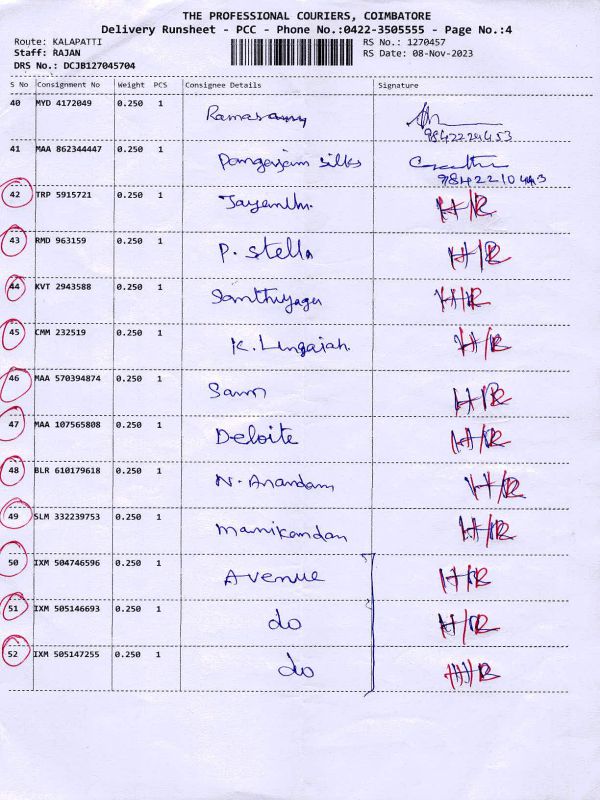 THE PROFESSIONAL COURIERS, COIMBATORE
Delivery Runsheet - PCC - Phone No.:0422-3505555 - Page No.:4
Route: KALAPATTI RS No.: 1270457
Staff: RAJAN RS Date: 08-Nov-2023
DRS No.: DCJB127045704
S No Consignment No Weight PCS Consignee Details Signature
40 MYD 4172049 0.250 1 Ramasamy
9842224453
41 MAA 862344447 0.250 1 Pongarjam Silks
42 TRP 5915721 0.250 1 H/R
43 RMD 963159 0.250 1 P. Stella H/R
44 KVT 2943588 0.250 1 H/R
45 CMM 232519 0.250 1 K. Lingaiah. H/R
46 MAA 570394874 0.250 1 H/R
47 MAA 107565808 0.250 1 Deloite H/R
48 BLR 610179618 0.250 1 N. Anandam H/R
49 SLM 332239753 0.250 1 Manikandan H/R
50 IXM 504746596 0.250 1 Avenue H/R
51 IXM 505146693 0.250 1 do H/R
52 IXM 505147255 0.250 1 do H/R